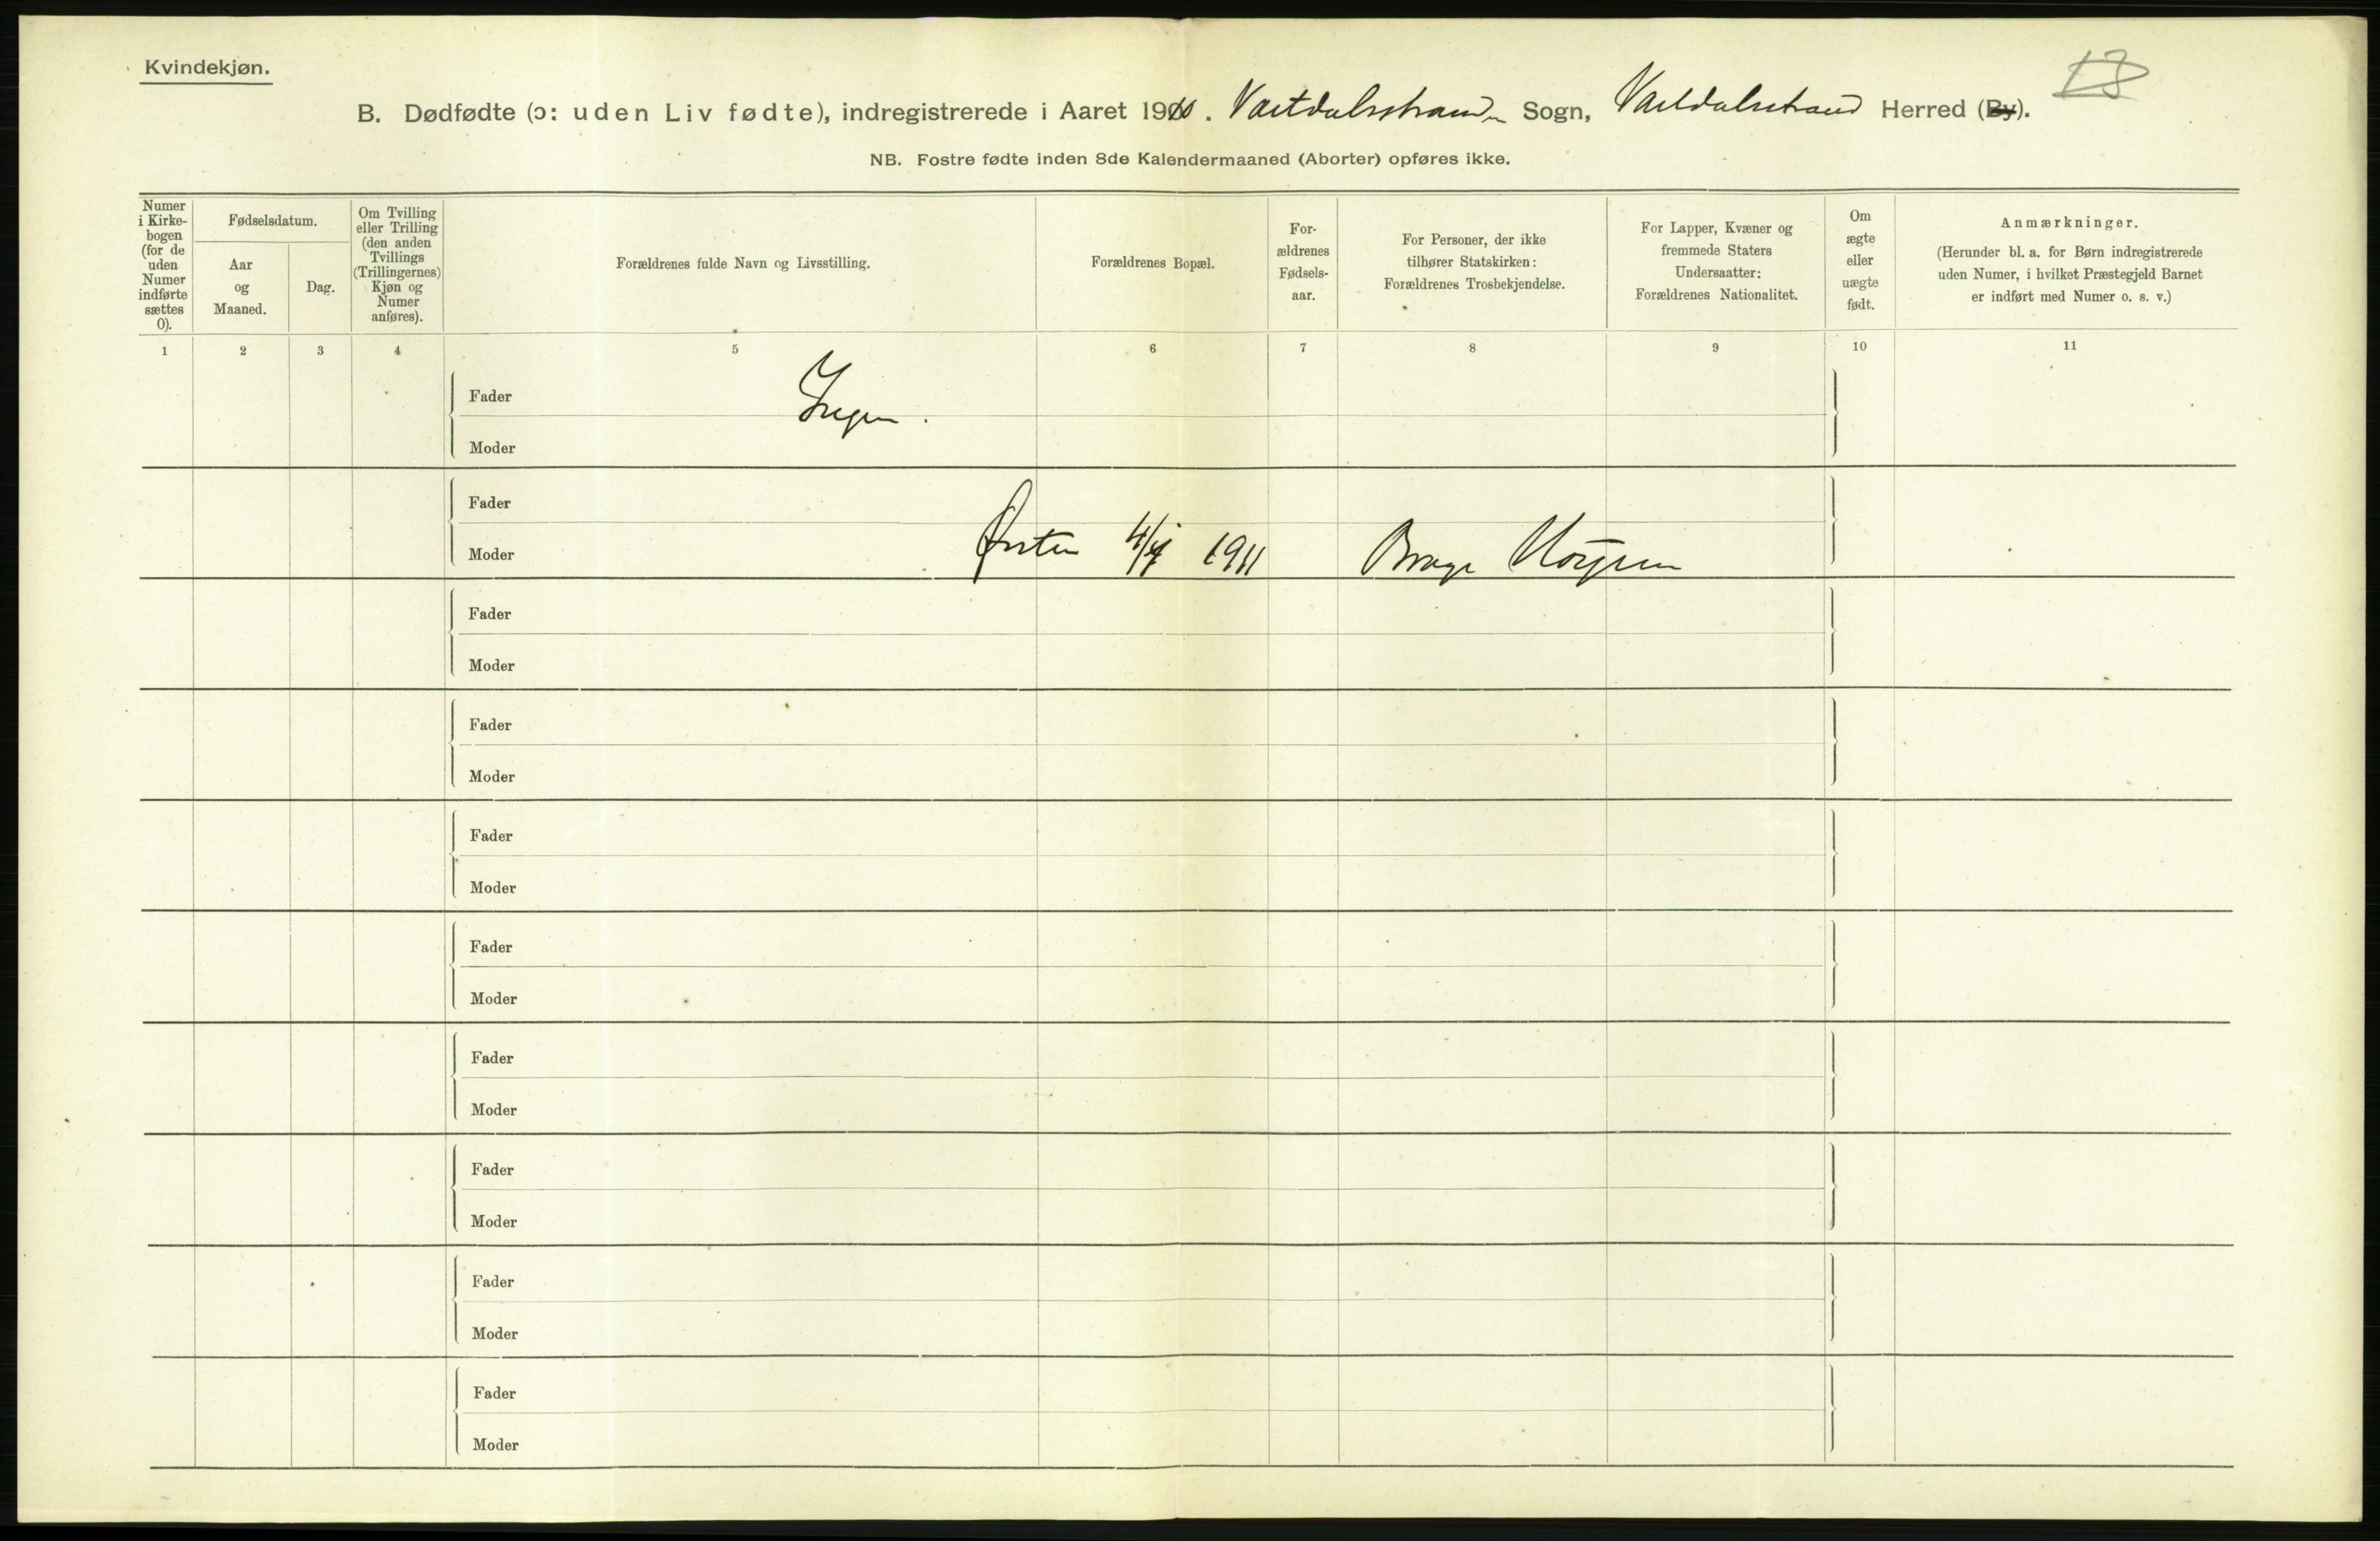 Kvindekjøn.
18
B. Dødfødte (ɔ: uden Liv fødte), indregistrerede i Aaret 1910. Vartdalsstrand Sogn, Vartdalsstrand Herred (By).
NB. Fostre fødte inden 8de Kalendermaaned (Aborter) opføres ikke.
Numer
i Kirke-
bogen
(for de
uden
Numer
indførte
sættes
0).
Fødselsdatum.
Aar
og
Maaned.
Dag.
Om Tvilling
eller Trilling
(den anden
Tvillings
(Trillingernes)
Kjøn og
Numer
anføres).
Forældrenes fulde Navn og Livsstilling.
Forældrenes Bopæl.
For-
ældrenes
Fødsels-
aar.
For Personer, der ikke
tilhører Statskirken:
Forældrenes Trosbekjendelse.
For Lapper, Kvæner og
fremmede Staters
Undersaatter:
Forældrenes Nationalitet.
Om
ægte
eller
uægte
født.
Anmærkninger.
(Herunder bl. a. for Børn indregistrerede
uden Numer, i hvilket Præstegjeld Barnet
er indført med Numer o. s. v.)
1 2 3 4 5 6 7 8 9 10 11
Fader
Ingen.
Moder
Fader
Moder
Ørsten 1911
Fader
Moder
Fader
Moder
Fader
Moder
Fader
Moder
Fader
Moder
Fader
Moder
Fader
Moder
Fader
Moder